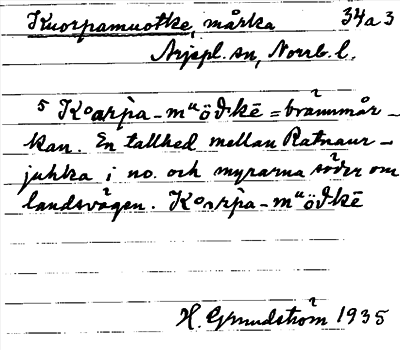 Kuorpamuotke, mårka 34a3
Arjepl. sn, Norrb. l.
5 Kᵒarpa-mᵘöδkē = brännmår-
kan. En tallhed mellan Ratnaur-
juhka i no. och myrarna söder om
landsvägen. Kᵒarpa-mᵘöδkē
H. Grundström 1935